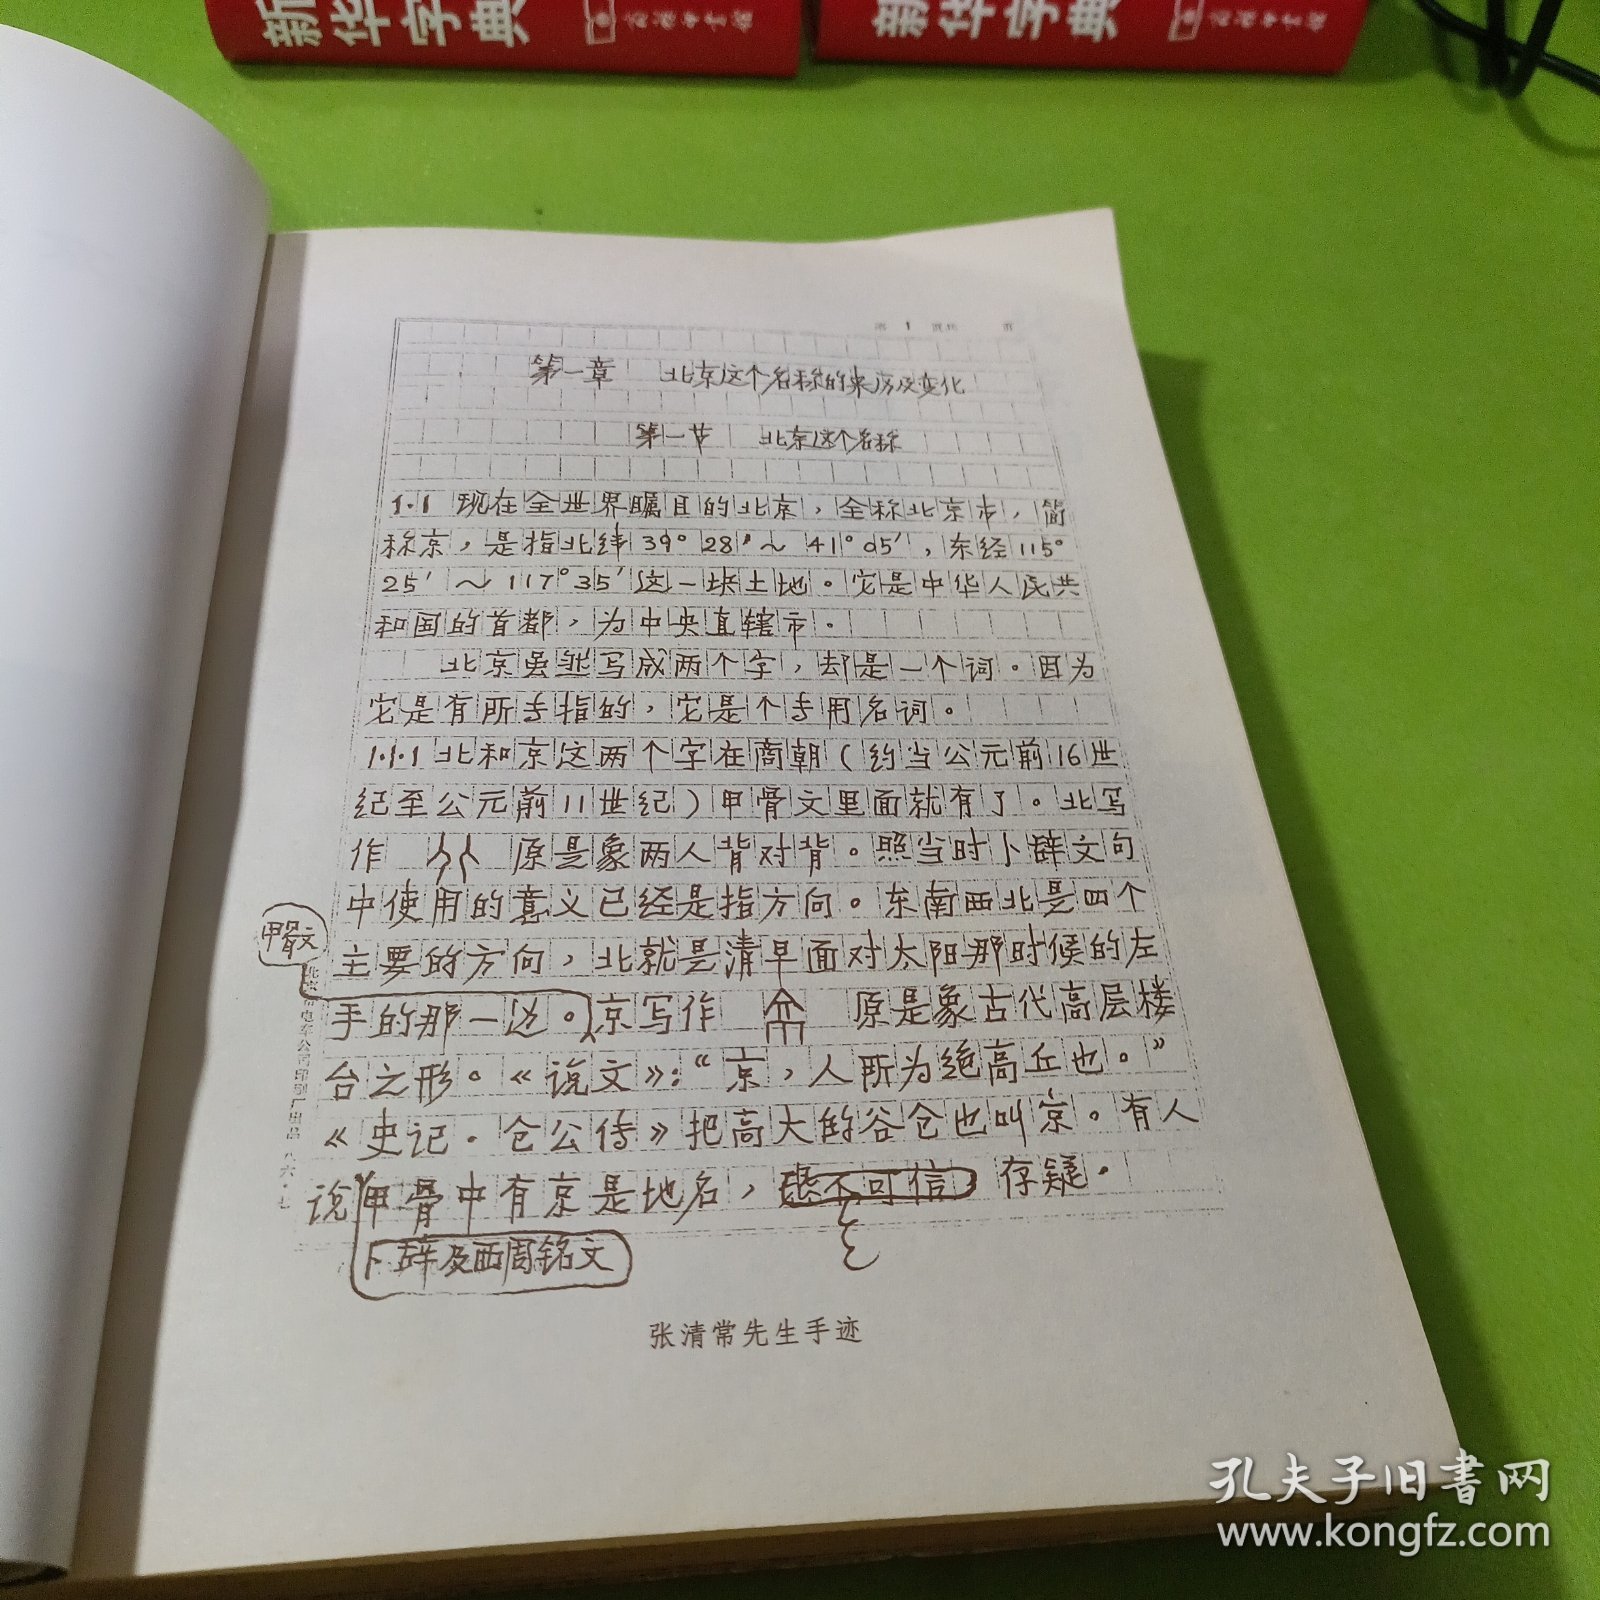 新华字典
商务印书馆
新华字典
商务印书馆
第 1 页共 页
第一章 北京这个名称的来历及变化
第一节 北京这个名称
1.1 现在全世界瞩目的北京，全称北京市，简
称京，是指北纬39°28′～41°05′，东经115°
25′～117°35′这一块土地。它是中华人民共
和国的首都，为中央直辖市。
北京虽然写成两个字，却是一个词。因为
它是有所专指的，它是个专用名词。
1.1.1 北和京这两个字在商朝（约当公元前16世
纪至公元前11世纪）甲骨文里面就有了。北写
作 原是象两人背对背。照当时卜辞文句
中使用的意义已经是指方向。东南西北是四个
主要的方向，北就是清早面对太阳那时候的左
手的那一边。京写作 原是象古代高层楼
甲骨文
台之形。《说文》：“京，人所为绝高丘也。”
《史记·仓公传》把高大的谷仓也叫京。有人
说甲骨中有京是地名，不可信 存疑。
卜辞及西周铭文
张清常先生手迹
孔夫子旧书网
www.kongfz.com